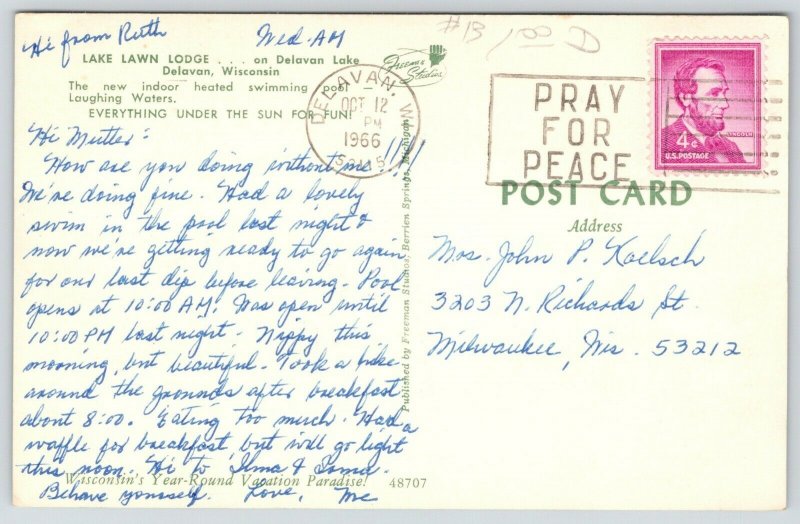 Hi from Ruth
Wed. AM
#13 1.00 D
LAKE LAWN LODGE . . . on Delavan Lake
Delavan, Wisconsin
The new indoor heated swimming pool —
Laughing Waters.
EVERYTHING UNDER THE SUN FOR FUN!
Freeman Studios
DELAVAN, WI
OCT 12
PM
1966
53115
PRAY
FOR
PEACE
LINCOLN
4¢
U.S. POSTAGE
POST CARD
Address
Hi Mutter:
How are you doing without me!!!!
We're doing fine. Had a lovely
swim in the pool last night &
now we're getting ready to go again,
for our last dip before leaving. Pool
opens at 10:00 AM. Was open until
10:00 PM last night. Nippy this
morning, but beautiful. Took a hike
around the grounds after breakfast
about 8:00. Eating too much. Had a
waffle for breakfast, but will go light
this noon. Hi to Ilma &
Behave yourself. Love, Me
Mrs. John P. Koelsch
3203 N. Richards St.
Milwaukee, Wis. 53212
Published by Freeman Studios, Berrien Springs, Michigan
Wisconsin's Year-Round Vacation Paradise!
48707